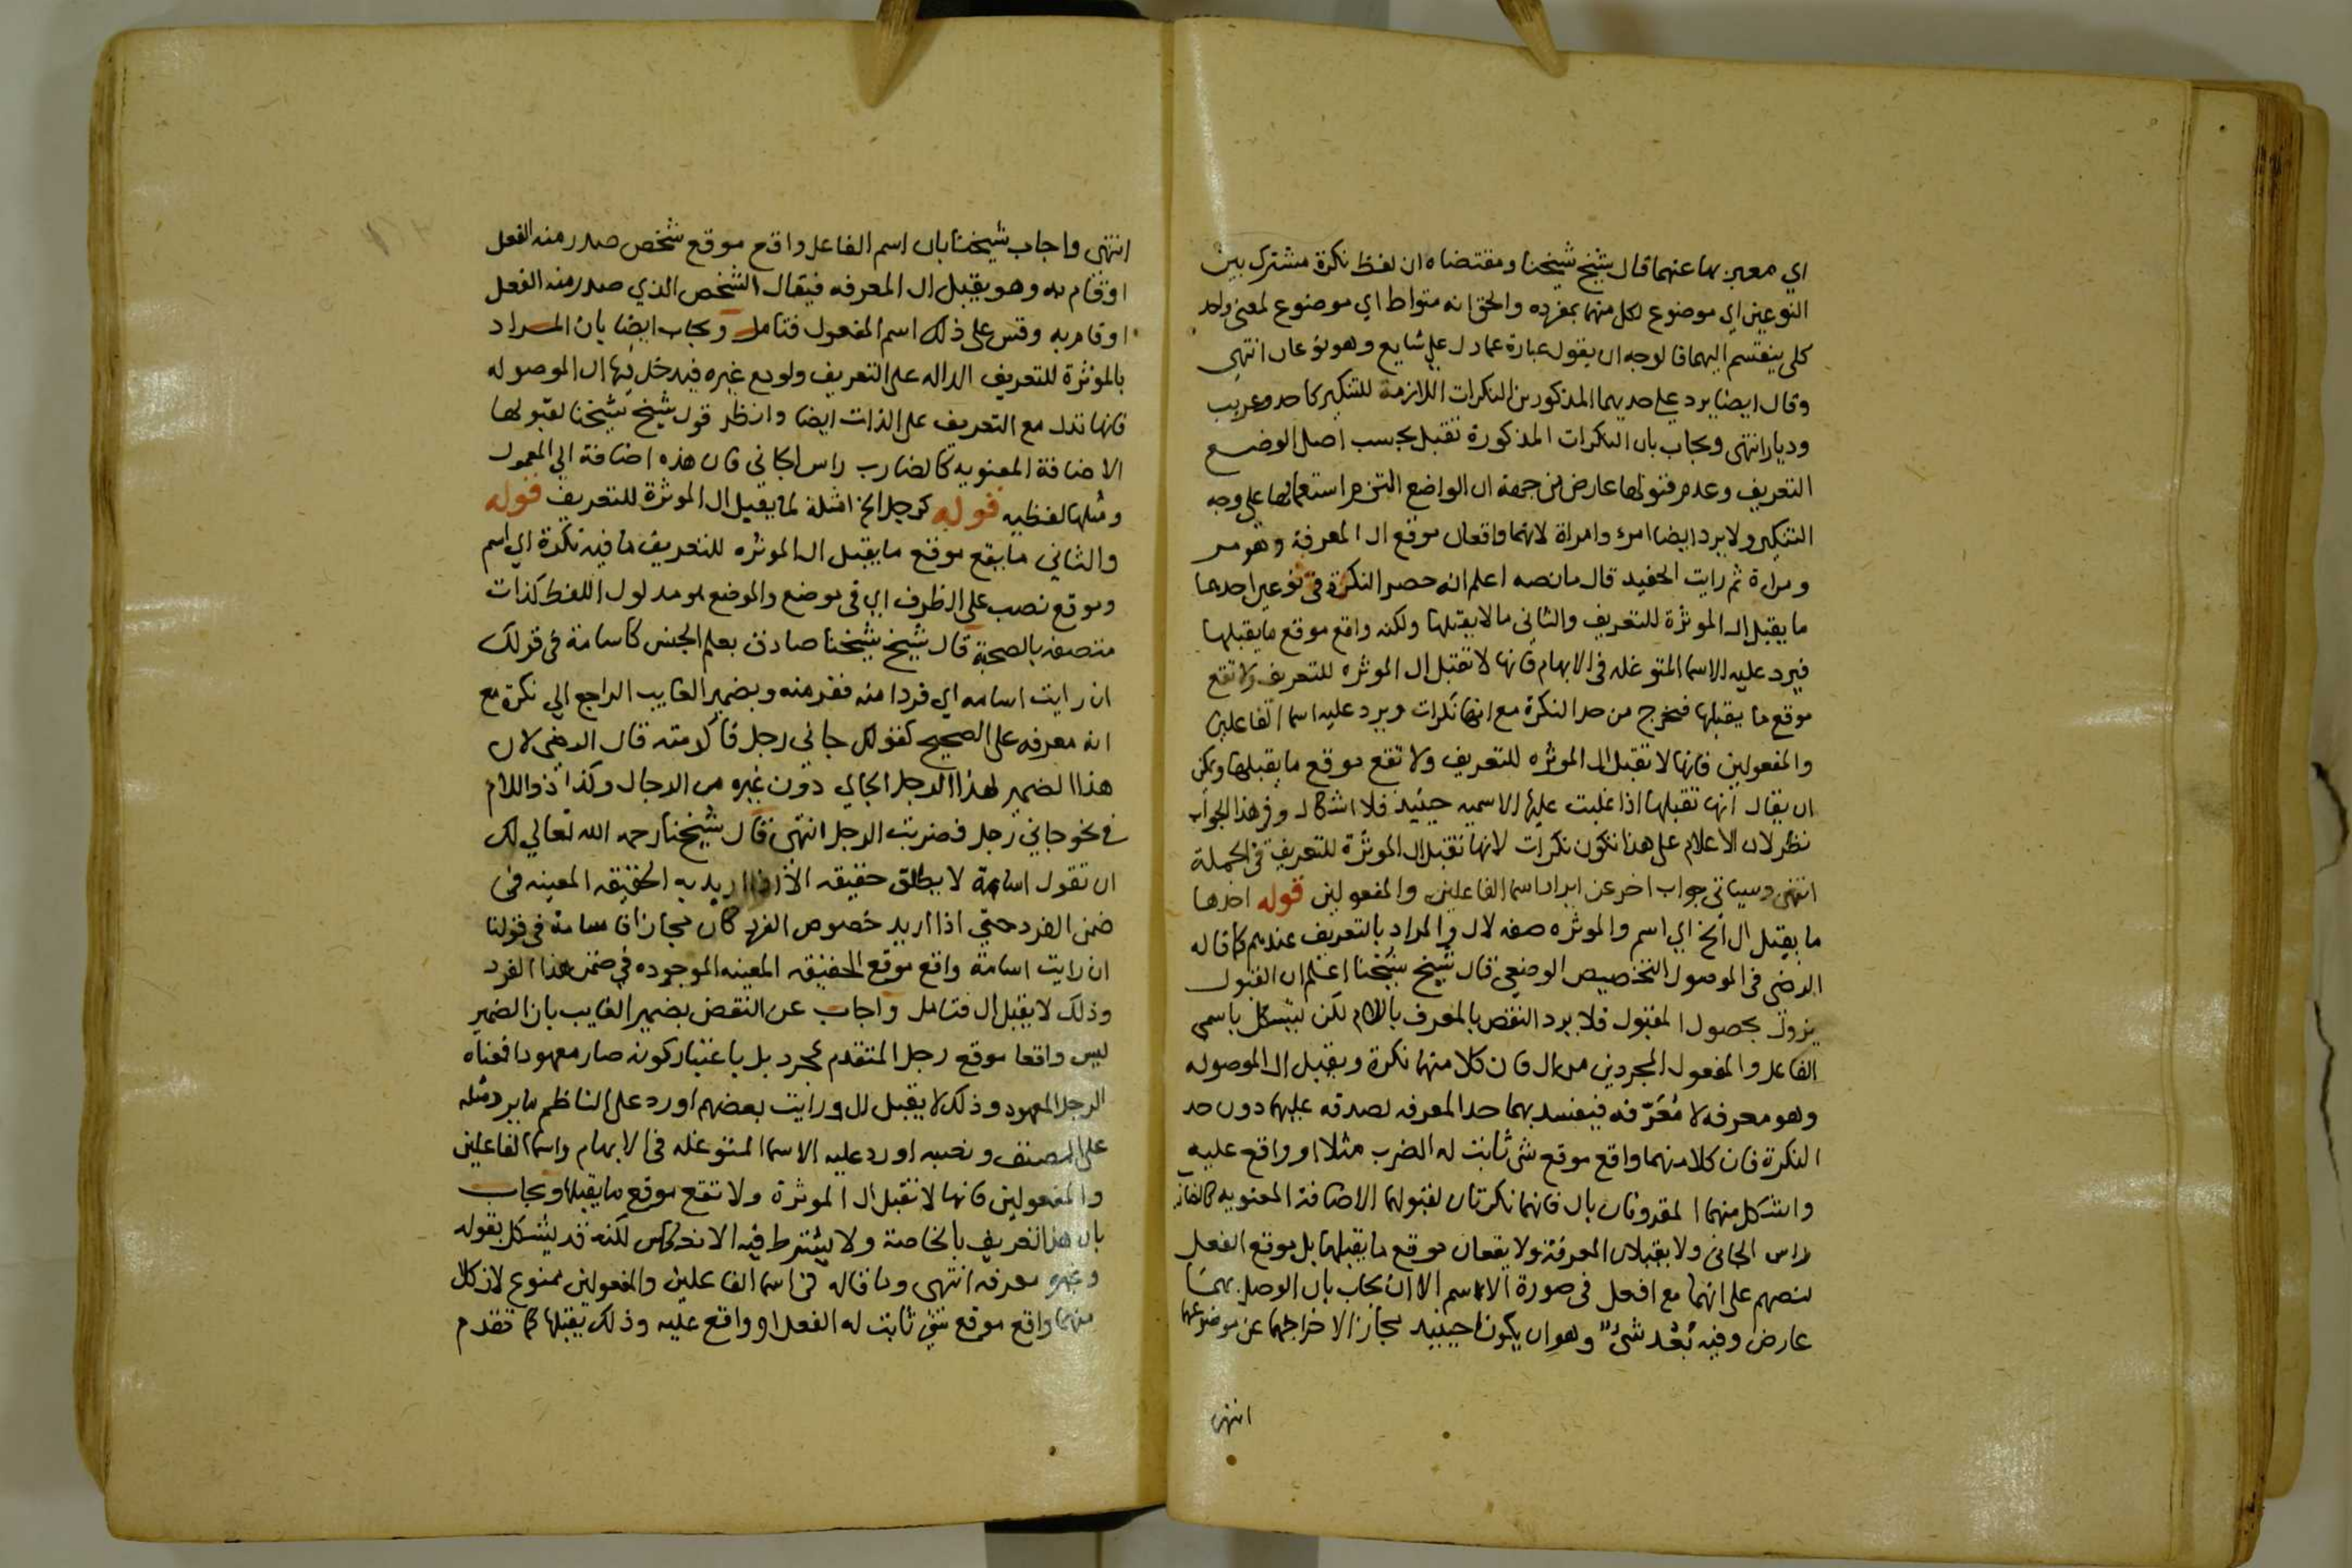 اي معبر بها عنهما قال شيخ شيخنا ومقتضاه ان لفظ نكرة مشترك بين
النوعين اي موضوع لكل منهما بمفرده والحق انه متواط اي موضوع لمعنى واحد
كلى ينقسم اليهما فالوجه ان يقول عبارة عما دل على شايع وهو نوعان انتهى
وقال ايضا يرد على حديهما المذكورين النكرات اللازمة للتنكير كاحد وعريب
وديار انتهى ويجاب بان النكرات المذكورة تقبل بحسب اصل الوضع
التعريف وعدم قبولها عارض من جهة ان الواضع التزم استعمالها على وجه
التنكير ولا يرد ايضا امرء وامراة لانهما واقعان موقع ال المعرفة وهو مر
ومراة ثم رايت الحفيد قال ما نصه اعلم انه حصر النكرة في نوعين احدهما
ما يقبل ال الموثرة للتعريف والثاني ما لا يقبلها ولكنه واقع موقع ما يقبلها
فيرد عليه الاسما المتوغله في الابهام فانها لا تقبل ال الموثره للتعريف ولا تقع
موقع ما يقبلها فتخرج من حد النكرة مع انها نكرات ويرد عليه اسما الفاعلين
والمفعولين فانها لا تقبل ال الموثره للتعريف ولا تقع موقع ما يقبلها ويمكن
ان يقال انها تقبلها اذا غلبت عليها الاسميه حينيد فلا اشكال وفي هذا الجواب
نظر لان الاعلام على هذا تكون نكرات لانها تقبل ال الموثرة للتعريف في الجملة
انتهى وسياتي جواب اخر عن ايراد اسما الفاعلين والمفعولين قوله احدها
ما يقبل ال الخ اي اسم والموثره صفه لال والمراد بالتعريف عندهم كما قاله
الرضي في الموصول التخصيص الوضعي قال شيخ شيخنا اعلم ان القبول
يزول بحصول المقبول فلا يرد النقض بالمعرف باللام لكن يشكل باسمى
الفاعل والمفعول المجردين من ال فان كلا منهما نكرة ويقبل ال الموصوله
وهو معرفه لا مُعَرّفه فيفسد بهما حد المعرفه لصدقه عليهما دون حد
النكرة فان كلا منهما واقع موقع شى ثابت له الضرب مثلا او واقع عليه
واشكل منهما المقرونان بال فانهما نكرتان لقبولهما الاضافة المعنويه كالضارب
راس الجاني ولا يقبلان المعرفة ولا يقعان موقع ما يقبلها بل موقع الفعل
لنصهم على انهما مع افعل في صورة الاسم الا ان يجاب بان الوصل بهما
عارض وفيه بُعْد شىٌ وهو ان يكون حينيد مجازا لاخراجهما عن موضوعهما
انتهى
انتهى واجاب شيخنا بان اسم الفاعل واقع موقع شخص صدر منه الفعل
او قام به وهو يقبل ال المعرفه فيقال الشخص الذي صدر منه الفعل
او قام به وقس على ذلك اسم المفعول فتامل ويجاب ايضا بان المراد
بالموثرة للتعريف الداله على التعريف ولو مع غيره فيدخل فيها ال الموصوله
فانها تدل مع التعريف على الذات ايضا وانظر قول شيخ شيخنا لقبولها
الاضافة المعنويه كالضارب راس الجاني فان هذه اضافة الي المعمول
ومثلها لفظيه قوله كرجل الخ امثلة لما يقبل ال الموثرة للتعريف قوله
والثاني ما يقع موقع ما يقبل ال الموثره للتعريف ما فيه نكرة اي اسم
وموقع نصب على الظرف اي في موضع والموضع هو مدلول اللفظ كذات
متصفه بالصحبة قال شيخ شيخنا صادق بعلم الجنس كاسامة في قولك
ان رايت اسامه اي فردا منه ففر منه وبضمير الغايب الراجع الي نكرة مع
انه معرفه على الصحيح كقولك جاني رجل فاكرمته قال الرضي لان
هذا الضمير لهذا الرجل الجاي دون غيره من الرجال وكذا ذو اللام
في نحو جاني رجل فضربت الرجل انتهى قال شيخنا رحمه الله تعالي لك
ان تقول اسامة لا يطلق حقيقه الا اذا اريد به الحقيقه المعينه في
ضمن الفرد حتي اذا اريد خصوص الفرد كان مجازا فاسامة في قولنا
ان رايت اسامة واقع موقع الحقيقه المعينه الموجوده في ضمن هذا الفرد
وذلك لا يقبل ال فتامل واجاب عن النقض بضمير الغايب بان الضمير
ليس واقعا موقع رجل المتقدم بمجرد بل باعتبار كونه صار معهودا فمعناه
الرجل المعهود وذلك لا يقبل ال ورايت بعضهم اورد على الناظم ما يرد مثله
على المصنف ونصه اورد عليه الاسما المتوغله في الابهام واسما الفاعلين
والمفعولين فانها لا تقبل ال الموثرة ولا تقع موقع ما يقبلها ويجاب
بان هذا تعريف بالخاصة ولا يشترط فيه الانعكاس لكنه قد يشكل بقوله
وغيره معرفه انتهى وما قاله في اسما الفاعلين والمفعولين ممنوع لان كلا
منهما واقع موقع شى ثابت له الفعل او واقع عليه وذلك يقبلها كما تقدم